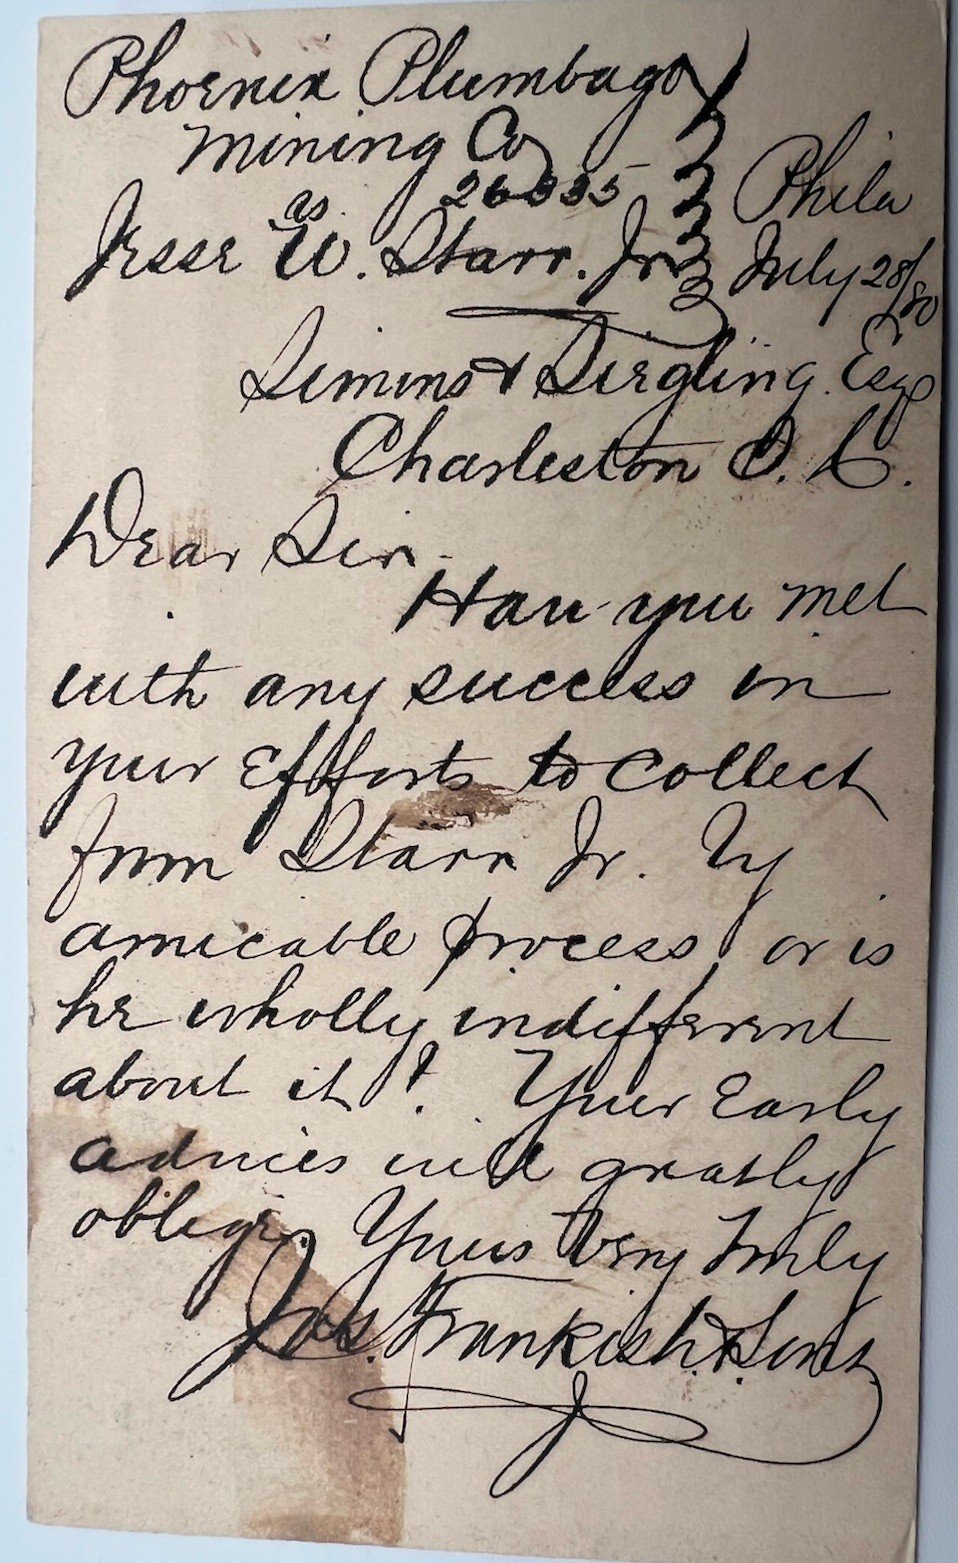 Phoenix Plumbago
Mining Co
26335 Phila
vs.
Jesse W. Starr. Jr July 28/80
Simons & Siegling Esqs
Charleston S. C.
Dear Sir.
Have you met
with any success in
your Efforts to collect
from Starr Jr. by
amicable process or is
he wholly indifferent
about it? Your Early
advices will greatly
oblige. Yours Very Truly
Jos. Frankish & Sons.